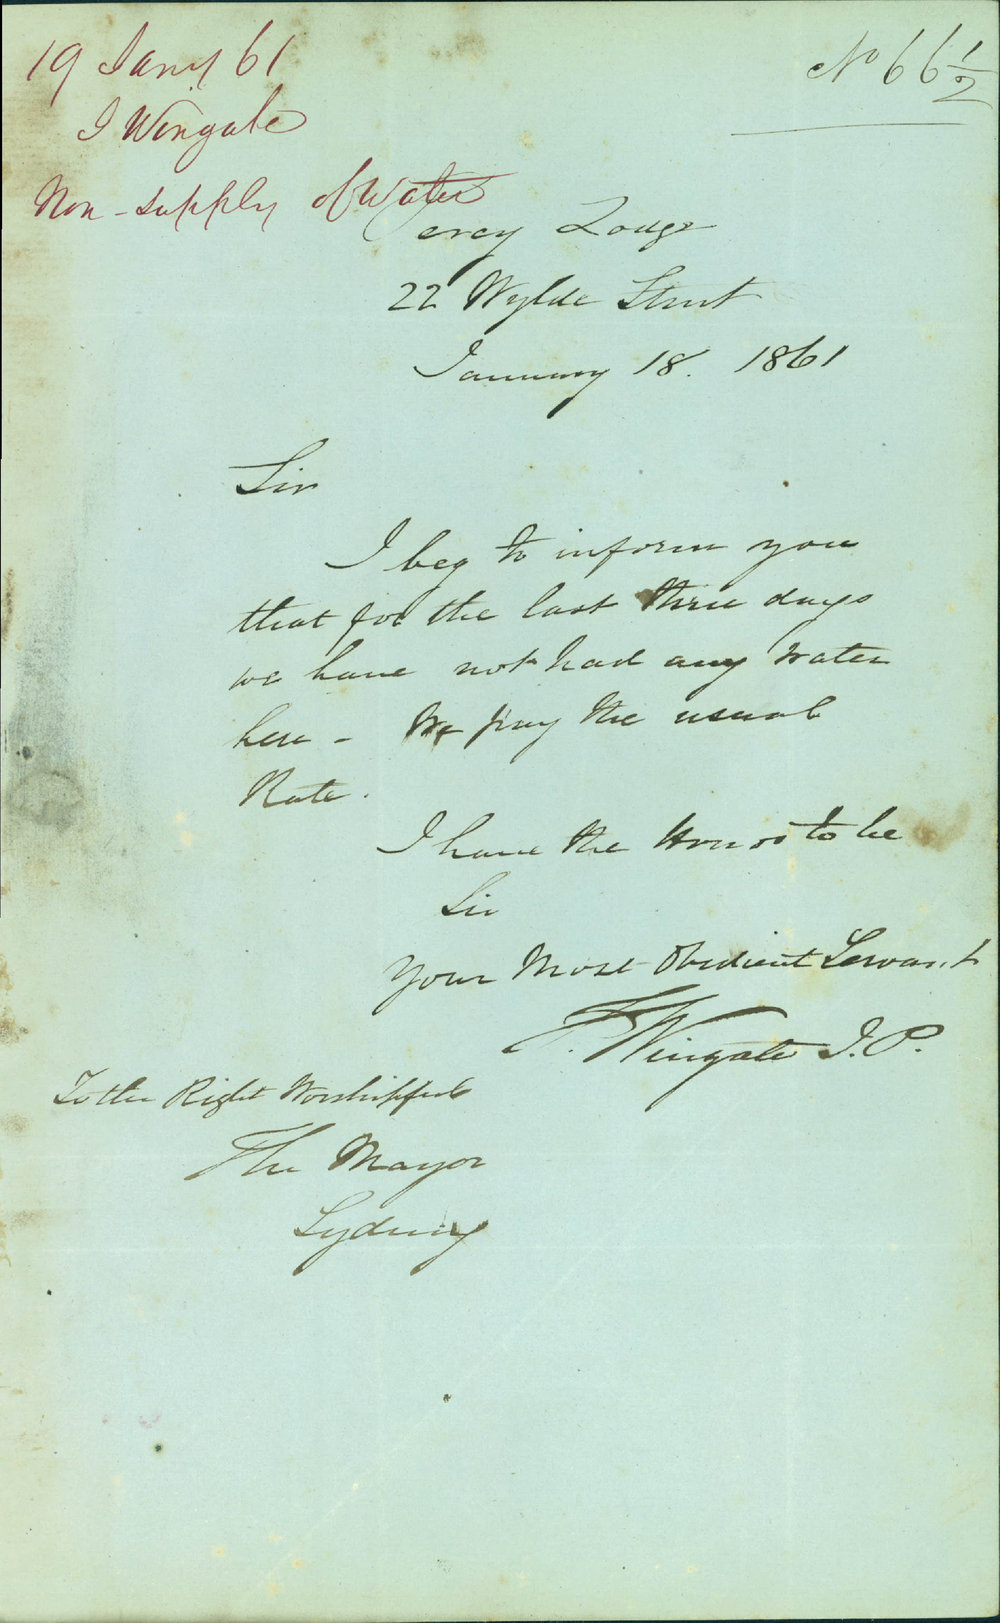 19 Jany 61
J Wingate
Non-supply of Water
No 66 1/2
Percy Lodge
22 Wylde Street
January 18. 1861
Sir
I beg to inform you
that for the last three days
we have not had any water
here - We pay the usual
Rate.
I have the Honor to be
Sir
Your Most Obedient Servant
Wingate J.P.
To the Right Worshipful
The Mayor
Sydney